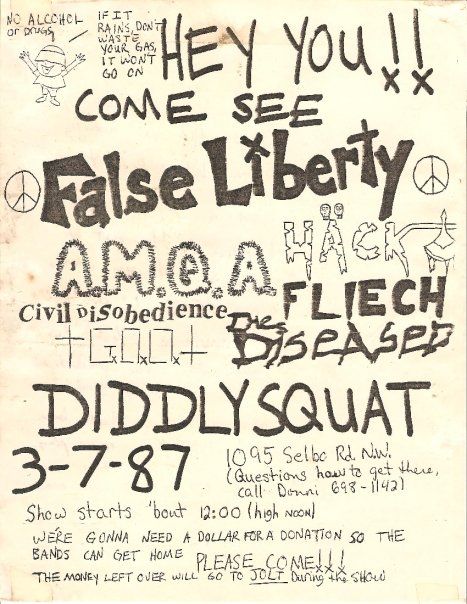 NO ALCOHOL
or DRUGS,
IF IT
RAINS, DON'T
WASTE
YOUR GAS,
IT WON'T
GO ON
HEY YOU!!
COME SEE
False Liberty
A.M.Q.A.
HÄCK
Civil Disobedience
FLIECH
The
DISEASED
DIDDLYSQUAT
3-7-87
1095 Selbo Rd. NW!
(Questions how to get there,
call Donni 698-1142)
Show starts 'bout 12:00 (high NOON)
WE'RE GONNA NEED A DOLLAR FOR A DONATION SO THE
BANDS CAN GET HOME PLEASE COME!!!
THE MONEY LEFT OVER WILL GO TO JOLT During the SHOW